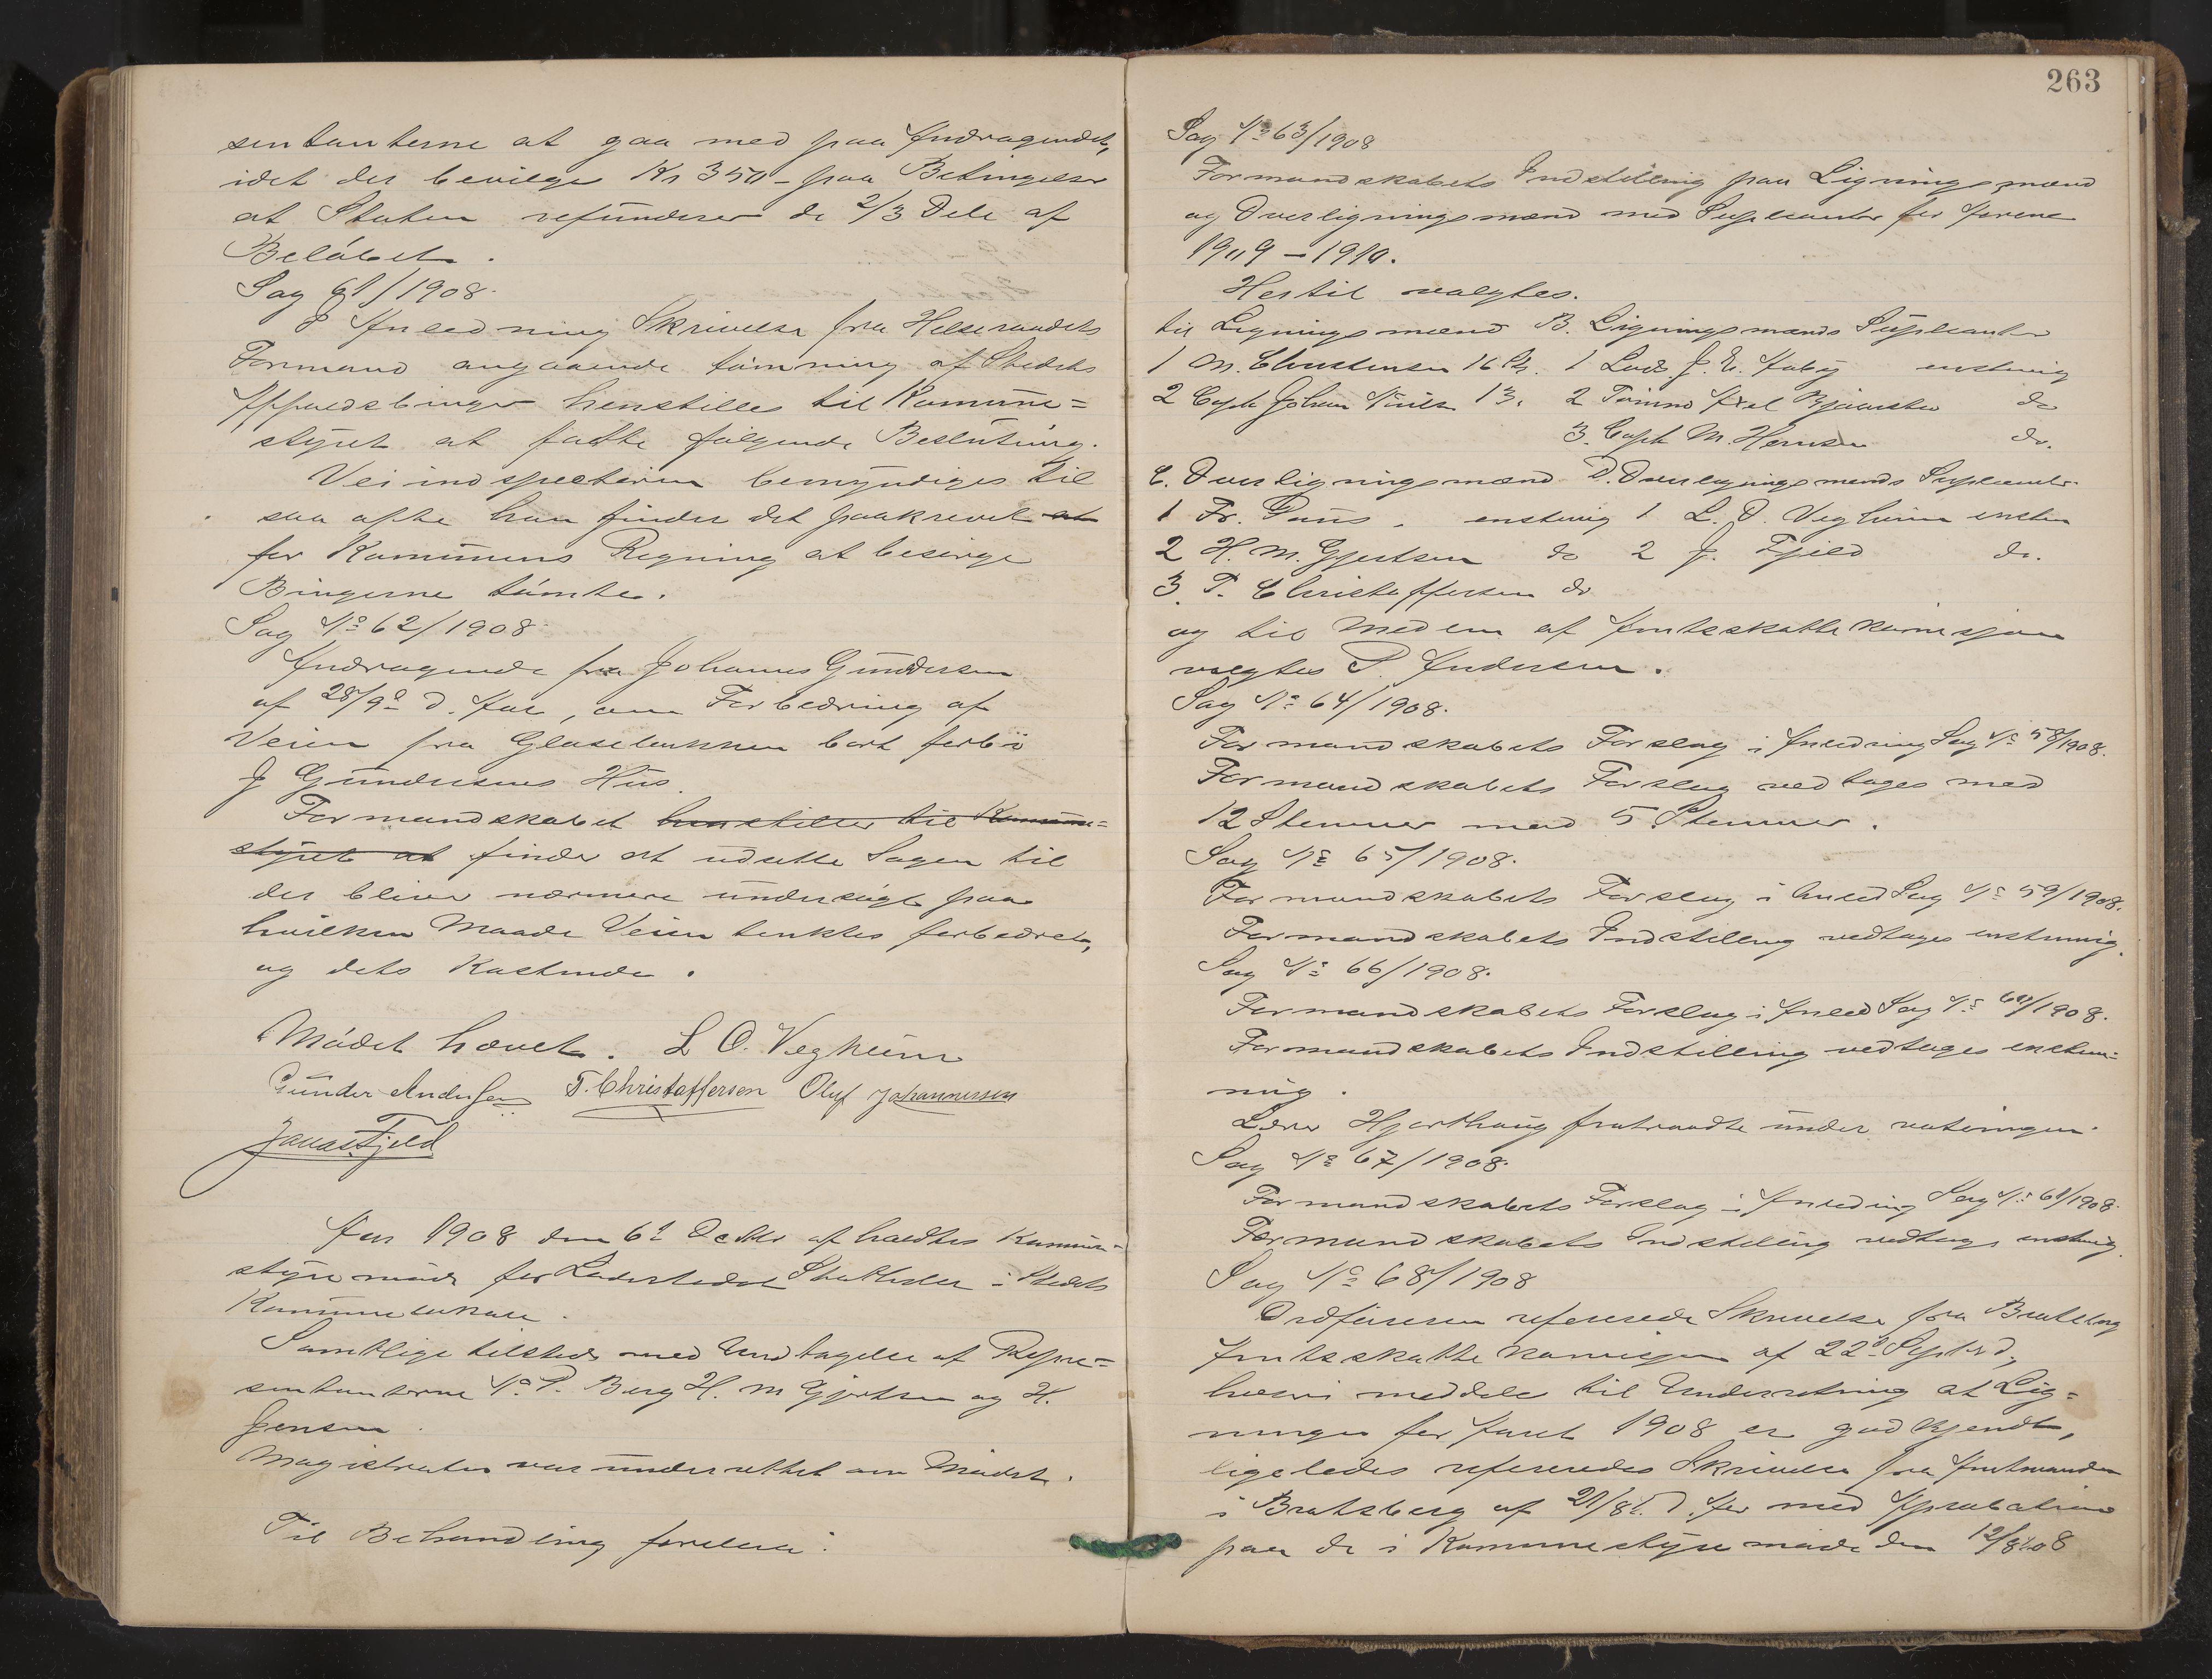 sentanterne at gaa med paa Andragendet,
idet der bevilges Kr 350 - paa Betingelse
at Staten refunderer de 2/3 Dele af
Beløbet.
Sag 61/1908.
I Anledning Skrivelse fra Helseraadets
Formand angaaende tømning af Stedets
Affaldsbinger henstilles til Komune=
styret at fatte følgende Beslutning.
Veiinspectøren bemyndiges til
saa ofte han finder det paakrevet at
for Komunens Regning at besørge
Bingerne tømte.
Sag No 62/1908
Andragende fra Johannes Gundersen
af 28/9 d. Aar, om Forbedring af
Veien fra bort forbi
J Gundersens Hus.
Formandskabet henstiller til Komune=
styret at finder at udsette Sagen til
der bliver nærmere undersøgt paa
hvilken Maade Veien tenktes forbedret,
og dets Kostende.
Mødet hævet. L O. Vegheim
Gunder Andersen T. Christoffersen Oluf Johannessen
Jonas Fjeld
Aar 1908 den 6te Octbr afholdtes Komune=
styremøde for Ladestedet Stathelle i Stedets
Komunelokale.
Samtlige tilstede med Undtagelse af Repre=
sentanterne N. P. Berg H. M Gjertsen og H.
Jensen.
Magistraten var underrettet om Mødet.
Til Behandling forelaa:
263
Sag No 63/1908
Formandskabets Indstilling paa Ligningsmænd
og Overligningsmænd med Supleanter for Aarene
1909 - 1910.
Hertil valgtes.
til Ligningsmænd B. Ligningsmænds Supleanter
1 M. Christensen 16 St. 1 Lods J. E. enstemig
2 Capt Johan Nilsen 13. 2 Tømmd Axel Bjørnstad do
3. Capt M. Hansen do.
C. Overligningsmænd D. Overligningsmænds Supleanter
1 Fr. enstemig 1 L. O. Vegheim enstem
2 H. M. Gjertsen do 2 J. Fjeld do.
3. T. Christoffersen do
og til Medlem af Amtsskattekomisjon
valgtes P. Andersen.
Sag No 64/1908.
Formandskabets Forslag i Anledning Sag No 58/1908.
Formandskabets Forslag vedtages med
12 Stemmer mod 5 Stemmer.
Sag No 65/1908.
Formandskabets Forslag i Anled Sag No 59/1908.
Formandskabets Indstilling vedtages enstemmig.
Sag No 66/1908.
Formandskabets Forslag i Anled Sag No 60/1908.
Formandskabets Indstilling vedtages enstem=
mig.
Lærer Hjorthaug fratraadte under voteringen.
Sag No 67/1908.
Formandskabets Forslag i Anledning Sag No 61/1908.
Formandskabets Indstilling vedtages enstemig.
Sag No 68/1908
Ordføreren refererede Skrivelse fra Bratsberg
Amtsskattekomisjon af 22de Septbr d,
hvori meddeles til Underretning at Lig=
ningen for Aaret 1908 er godkjendt,
ligeledes refereredes Skrivelse fra Amtmanden
i Bratsberg af 21/8 d. Aar med Aprobation
paa de i Komunestyremøde den 12/8 08